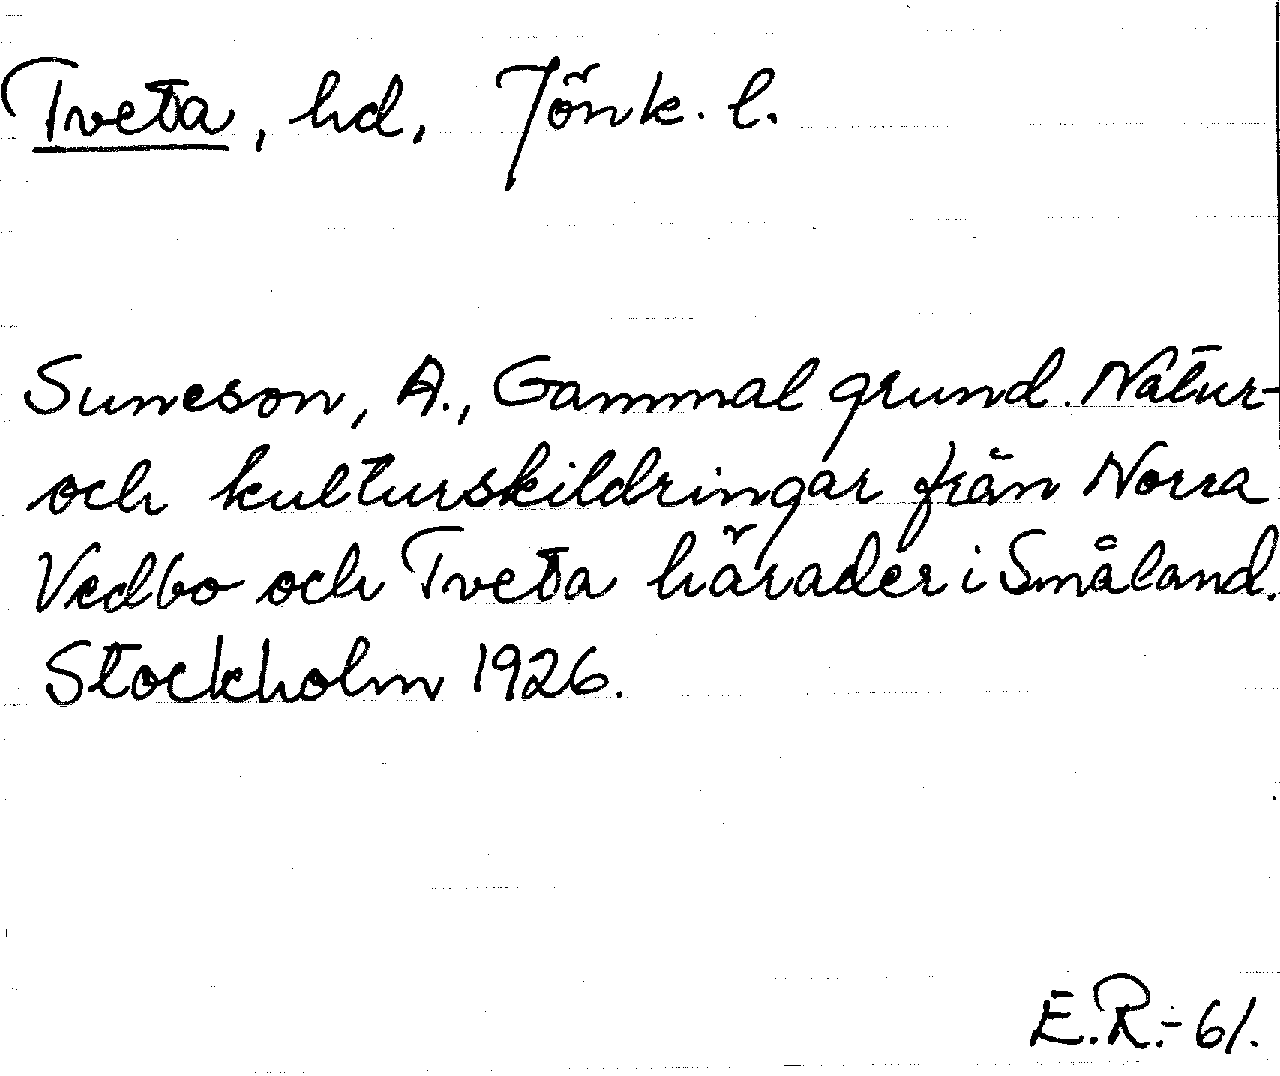 Tveta, hd, Jönk. l.
Suneson, A., Gammal grund. Natur-
och kulturskildringar från Norra
Vedbo och Tveta härader i Småland.
Stockholm 1926.
E.R.-61.